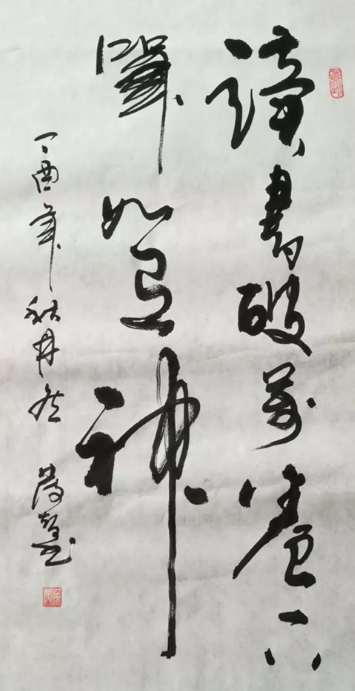 讀書破萬卷下
筆如有神
丁酉年秋